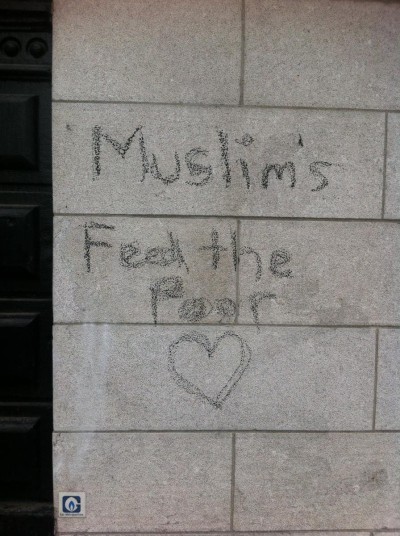 Muslim's
Feed the
Poor